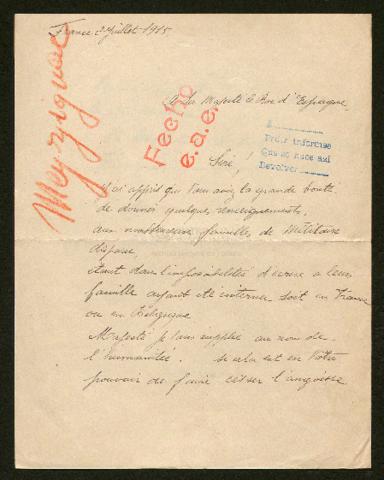 France 2 Juillet 1915
Meyzignac
A Sa Majesté le Roi d'Espagne
Fecho
e.a.e.
Pedir informse
Devolver
Sire !
J'ai appris que vous avez la grande bonté
de donner quelques renseignements,
aux familles de Militaire
disparu,
étant dans l'impossibilités d'écrire a leur
famille ayant été interner soit en France
ou en Belgique
Majesté je vous supplie au nom de
l'humanitée. si cela est en Votre
pouvoir de faire cesser l'angoisse